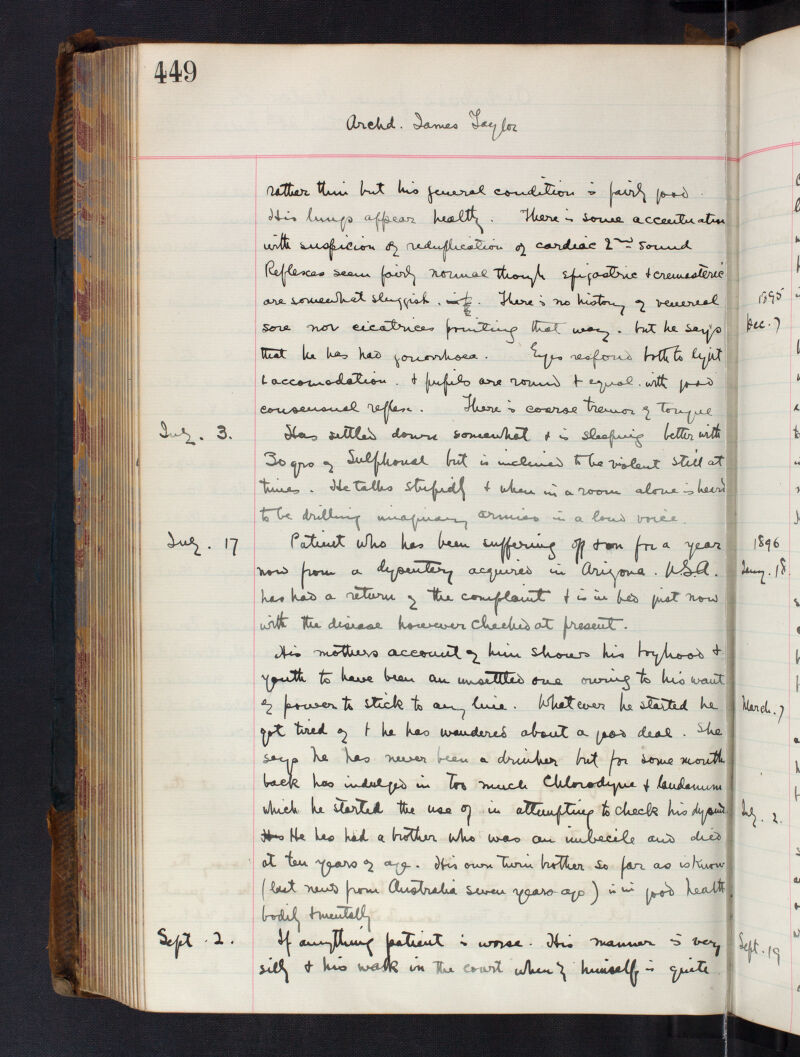 449
Archd. James Taylor
rather thin but his general condition is fairly good.
His lungs appear healthy. There is some accentuation
with suspicion of reduplication of cardiac 2nd sound
Reflexes seem fairly normal though epigastric & cremasteric
are somewhat sluggish. There is no history of venereal
sore nor cicatrices pointing that way. but he says
that he has had gonorrhoea. Eyes respond both to light
& accomodation. & pupils are round & equal. with good
consensual reflex. There is coarse tremor of tongue
July. 3. Has settled down somewhat & is sleeping better with
30 grs of Sulphonal but is inclined to be violent still at
times. He talks stupidly & when in a room alone is heard
to be drilling imaginary armies in a loud voice.
July. 17 Patient who has been suffering off & on for a year
now from a dysentery acquired in Arizona. U.S.A.
has had a return of the complaint & is in bed just now
with the disease however checked at present.
His mothers account of him shows his boyhood &
youth to have been an unsettled one owing to his want
of power to stick to any line. Whatever he started he
got tired of & he has wandered about a good deal. She
says he has never been a drinker but for some months
back has indulged in too much Chlorodyne & laudanum
which he started the use of in attempting to check his
He has had a brother who was an imbecile and died
at ten years of age. His own twin brother so far as is known
(last news from Australia seven years ago) is in good health
bodily & mentally
Sept. 2. If anything patient is worse. His manner is very
silly & his walk in the court when by himself is quite
1895
Dec. 7
1896
Jany. 18
March. 7
July. 2.
Sept. 19